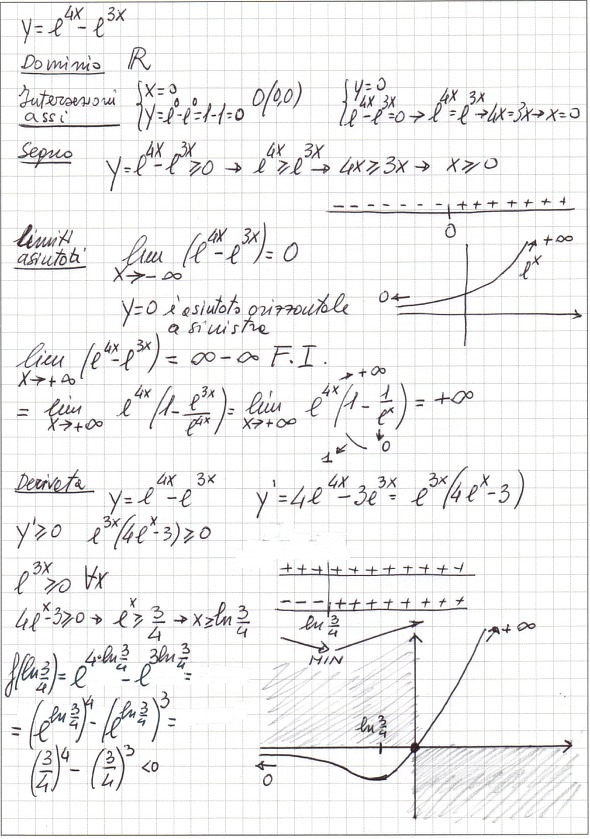 y = e^{4x} - e^{3x}
Dominio ℝ
Intersezioni assi { x=0 ; y=e^0-e^0=1-1=0 O(0,0) { y=0 ; e^{4x}-e^{3x}=0 → e^{4x}=e^{3x} → 4x=3x → x=0
Segno y=e^{4x}-e^{3x} ≥0 → e^{4x} ≥ e^{3x} → 4x ≥ 3x → x ≥ 0
- - - - - - - + + + + + + + +
0
limiti asintoti lim x→-∞ (e^{4x}-e^{3x}) = 0
→ +∞
e^x
0 ←
y=0 è asintoto orizzontale
a sinistra
lim x→+∞ (e^{4x}-e^{3x}) = ∞-∞ F.I.
= lim x→+∞ e^{4x} (1 - e^{3x}/e^{4x}) = lim x→+∞ e^{4x} (1 - 1/e^x) = +∞
→ +∞
1 0
Derivata y=e^{4x}-e^{3x} y'=4e^{4x}-3e^{3x} = e^{3x}(4e^x-3)
y' ≥ 0 e^{3x}(4e^x-3) ≥ 0
e^{3x} ≥ 0 ∀x
+ + + + + + + + + + +
4e^x-3 ≥ 0 → e^x ≥ 3/4 → x ≥ ln 3/4
- - - - + + + + + + + +
ln 3/4
MIN
→ +∞
f(ln 3/4) = e^{4·ln 3/4} - e^{3 ln 3/4} =
= (e^{ln 3/4})^4 - (e^{ln 3/4})^3 =
ln 3/4
(3/4)^4 - (3/4)^3 < 0
← 0